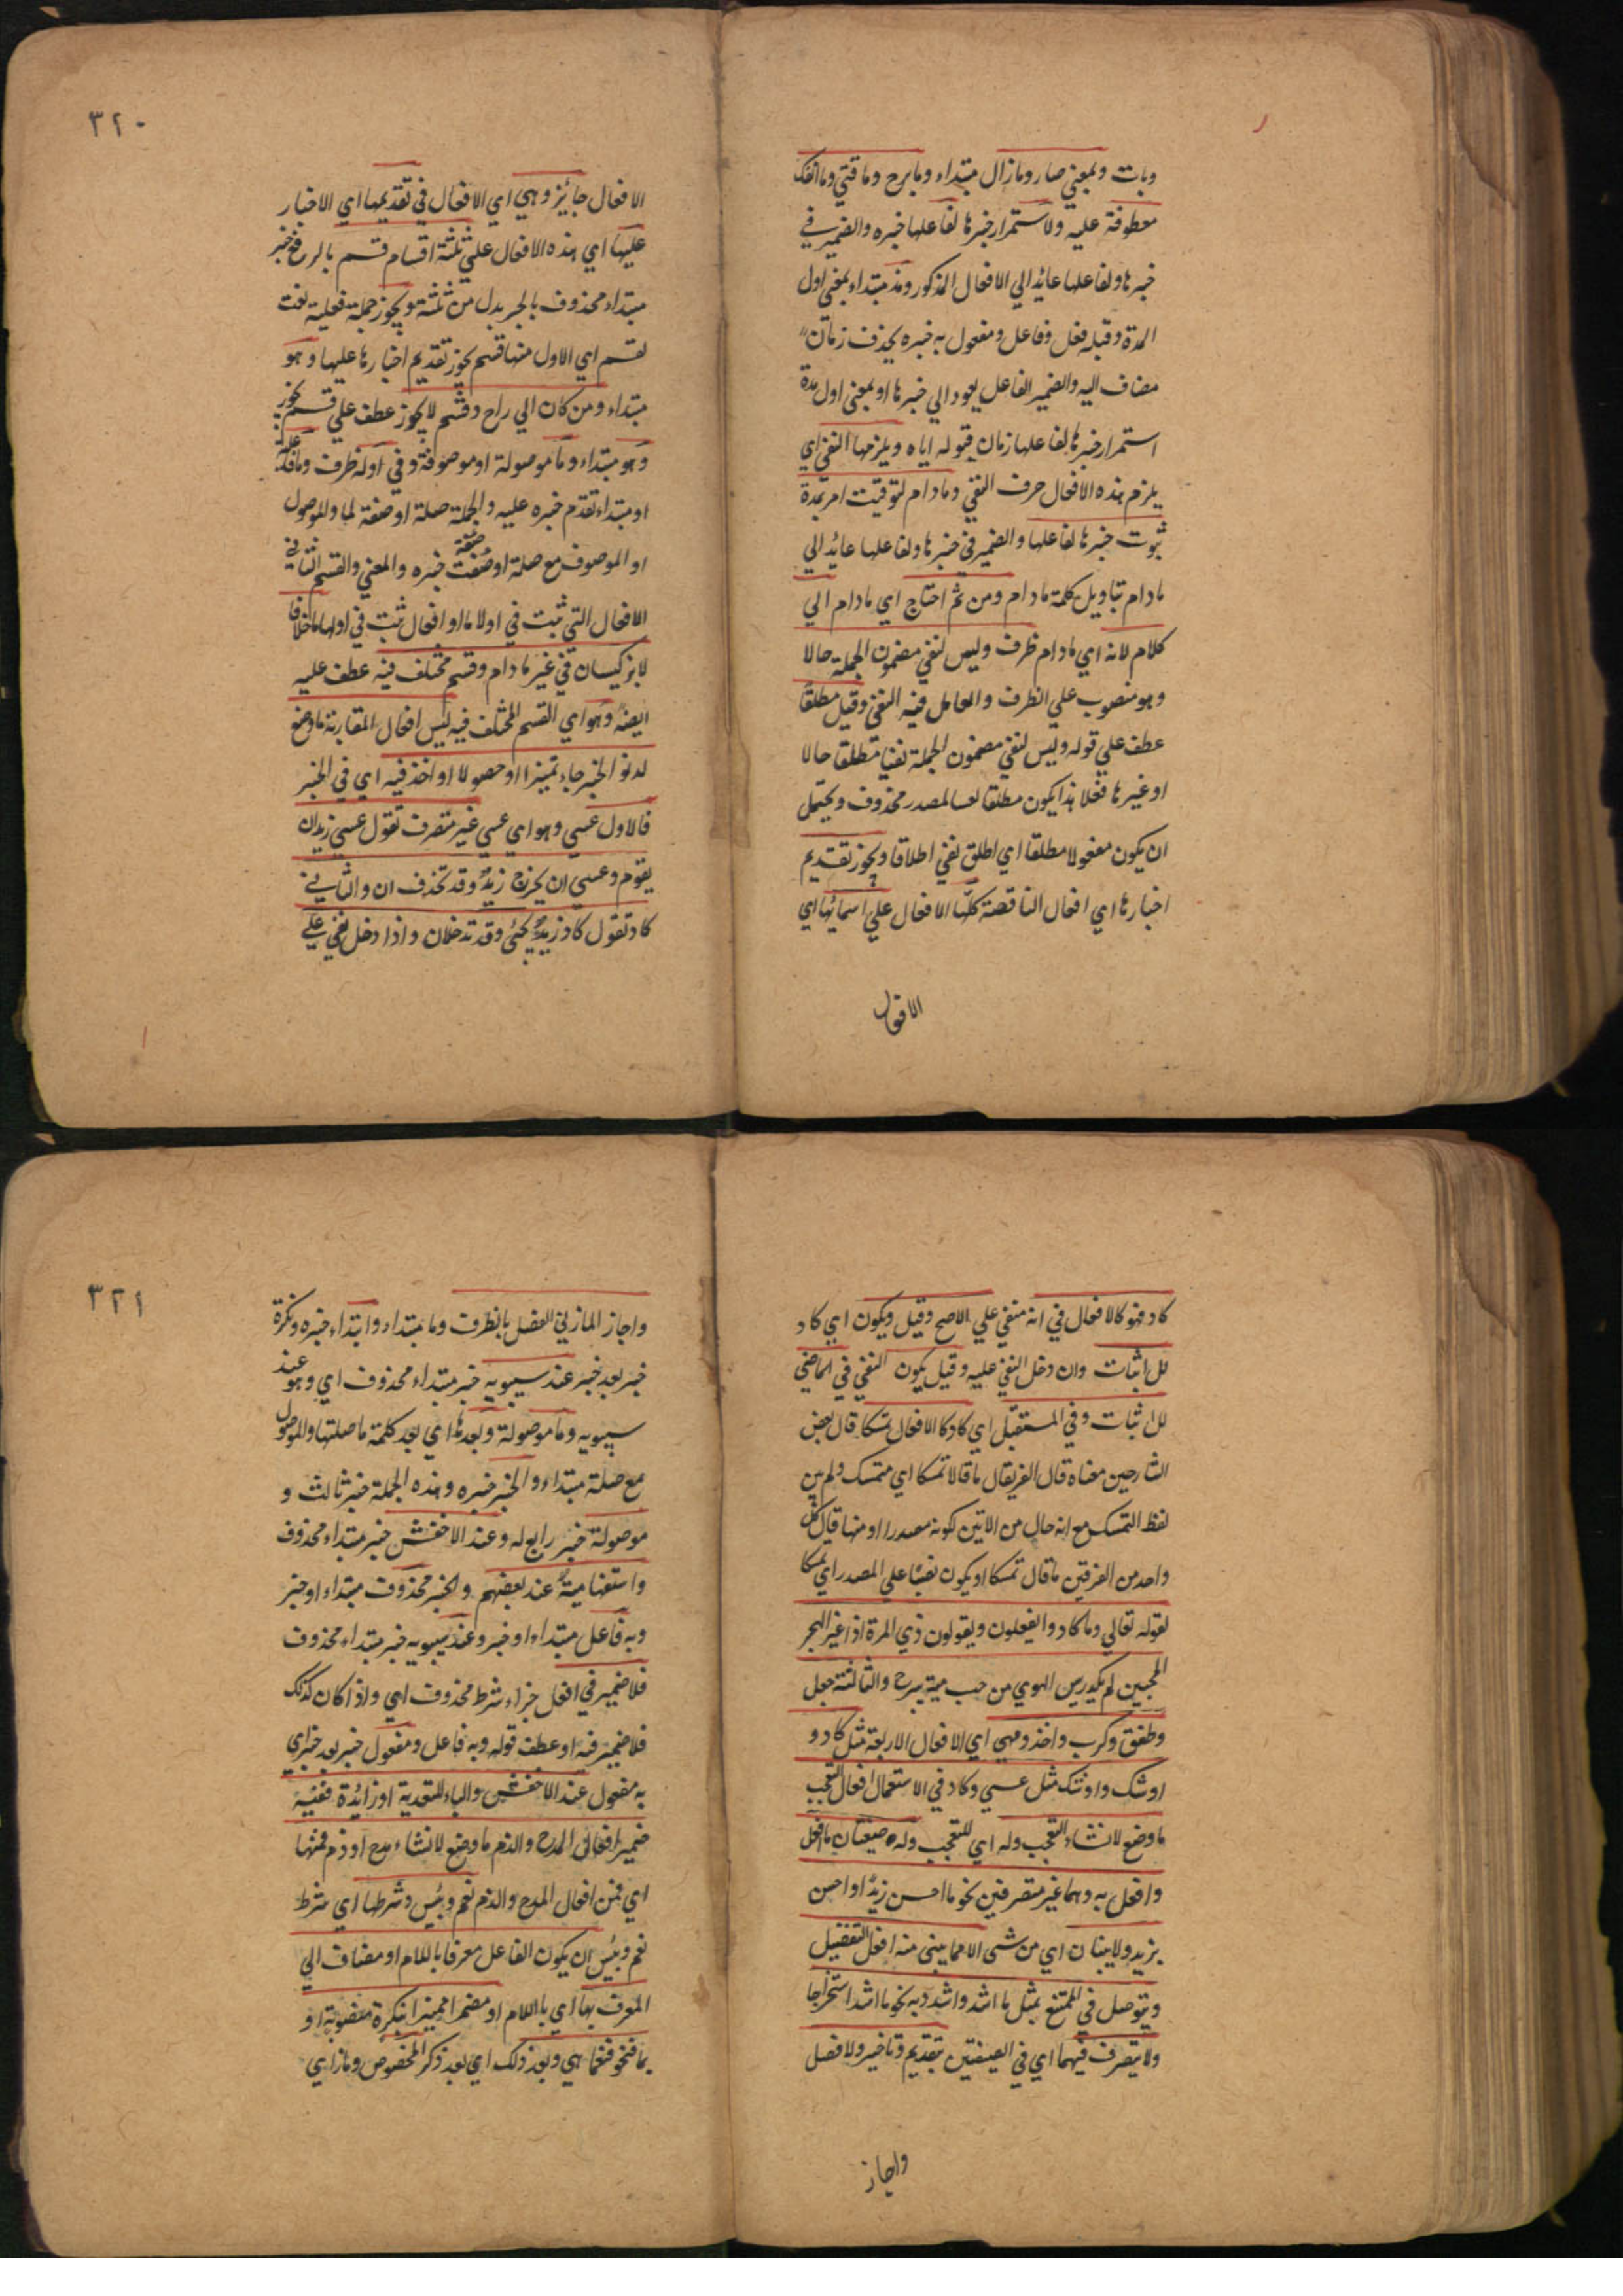 وبات وبمعني صار ومازال مبتداء ومابرح ومافتي وماانفك
معطوفة عليه ولاستمرار خبرها لفاعلها خبره والضمير في
خبرها ولفاعلها عايد الي الافعال المذكور ومذ مبتداء بمعني اول
المدة وقبله فعل وفاعل ومفعول به خبره بحذف زمان
مضاف اليه والضمير الفاعل يعود الي خبرها او بمعني اول مدة
استمرار خبرها لفاعلها زمان قبوله اياه ويلزمها النفي اي
يلزم هذه الافعال حرف النفي ومادام لتوقيت امر بمدة
ثبوت خبرها لفاعلها والضمير في خبرها ولفاعلها عائد الي
مادام بتاويل كلمة مادام ومن ثم احتاج اي مادام الي
كلام لانه اي مادام ظرف وليس لنفي مضمون الجملة حالا
وهو منصوب علي الظرف والعامل فيه النفي وقيل مطلقا
عطف علي قوله وليس لنفي مضمون الجملة نفيا مطلقا حالا
او غيرها فعلا هذا يكون مطلقا لمصدر محذوف ويحتمل
ان يكون مفعولا مطلقا اي اطلق نفي اطلاقا ويجوز تقديم
اخبارها اي افعال الناقصة كلها الافعال علي اسمائها اي
الافعال
٣٢٠
الافعال جائز وهي اي الافعال في تقديمها اي الاخبار
عليها اي هذه الافعال علي ثلثة اقسام قسم بالرفع خبر
مبتداء محذوف بالجر بدل من ثلثة ويجوز جملة فعلية نعت
لقسم اي الاول منها قسم يجوز تقديم اخبارها عليها وهو
مبتداء ومن كان الي راح وقسم لا يجوز عطف علي قسم يجوز
وهو مبتداء وما موصولة او موصوفة وفي اوله ظرف وما فاعله
او مبتداء تقدم خبره عليه والجملة صلة او صفة لما والموصول
او الموصوف مع صلة او صفت خبره والمعني والقسم الثاني
الافعال التي ثبت في اولا ما او افعال ثبت في اولها ما خلافا
لابن كيسان في غير مادام وقسم مختلف فيه عطف عليه
ايضه وهو اي القسم المختلف فيه ليس افعال المقاربة ماوضع
لدنو الخبر جاء تميزا او حصولا او اخذ فيه اي في الخبر
فالاول عسي وهو اي عسي غير متصرف تقول عسي زيد ان
يقوم وعسي ان يخرج زيد وقد تحذف ان والثاني
كاد تقول كاد زيد يجئ وقد تدخل ان واذا دخل نفي علي
كاد فهو كالافعال في انه منفي علي الاصح وقيل ويكون اي كاد
للاثبات وان دخل النفي عليه وقيل يكون النفي في الماضي
للاثبات وفي المستقبل اي كاد كالافعال تمسكا قال بعض
الشارحين معناه قال الفريقان ماقالا تمسكا اي متمسك ولم
لفظ التمسك مع انه حال من الاثنين لكونه مصدرا او منها قال كل
واحد من الفريقين ماقال تمسكا او يكون نصبا علي المصدر اي تمسكا
لقوله تعالي وماكادوا يفعلون ويقولون ذي الرمة اذا غير الهجر
المحبين لم يكد رسيس الهوي من حب مية يبرح والثالثة جعل
وطفق وكرب واخذ وهي اي الافعال الاربعة مثل كاد و
اوشك واوشك مثل عسي وكاد في الاستعمال افعال التعجب
ماوضع لانشاء التعجب وله اي للتعجب وله صيغتان ماافعل
وافعل به وهما غير متصرفين نحو مااحسن زيدا واحسن
بزيد ولايبنان اي من شئ الا مما يبني منه افعل التفضيل
ويتوصل في الممتنع بمثل مااشد واشدد به نحو مااشد استخراجا
ولايتصرف فيهما اي في الصيغتين بتقديم وتاخير ولافصل
واجاز
٣٢١
واجاز المازني الفصل بالظرف وما مبتداء وابتداء خبره ونكرة
خبر بعد خبر عند سيبويه خبر مبتداء محذوف اي وهو عند
سيبويه وما موصولة وبعدها اي بعد كلمة ما صلتها والموصول
مع صلة مبتداء والخبر خبره وهذه الجملة خبر ثالث و
موصولة خبر رابع له وعند الاخفش خبر مبتداء محذوف
واستفهامية عند بعضهم والخبر محذوف مبتداء او خبر
وبه فاعل مبتداء او خبر وعند سيبويه خبر مبتداء محذوف
فلاضمير في افعل جزاء شرط محذوف اي واذا كان كذلك
فلاضمير فيه او عطف قوله وبه فاعل ومفعول خبر بعد خبر اي
به مفعول عند الاخفش والباء للتعدية او زائدة ففيه
ضمير افعال المدح والذم ماوضع لانشاء مدح او ذم فمنها
اي فمن افعال المدح والذم نعم وبئس وشرطها اي شرط
نعم وبئس ان يكون الفاعل معرفا باللام او مضاف الي
المعرف بها اي باللام او مضمرا مميزا بنكرة منصوبة او
بما نحو فنعما هي وبعد ذلك اي بعد ذكر المخصوص ومازاي